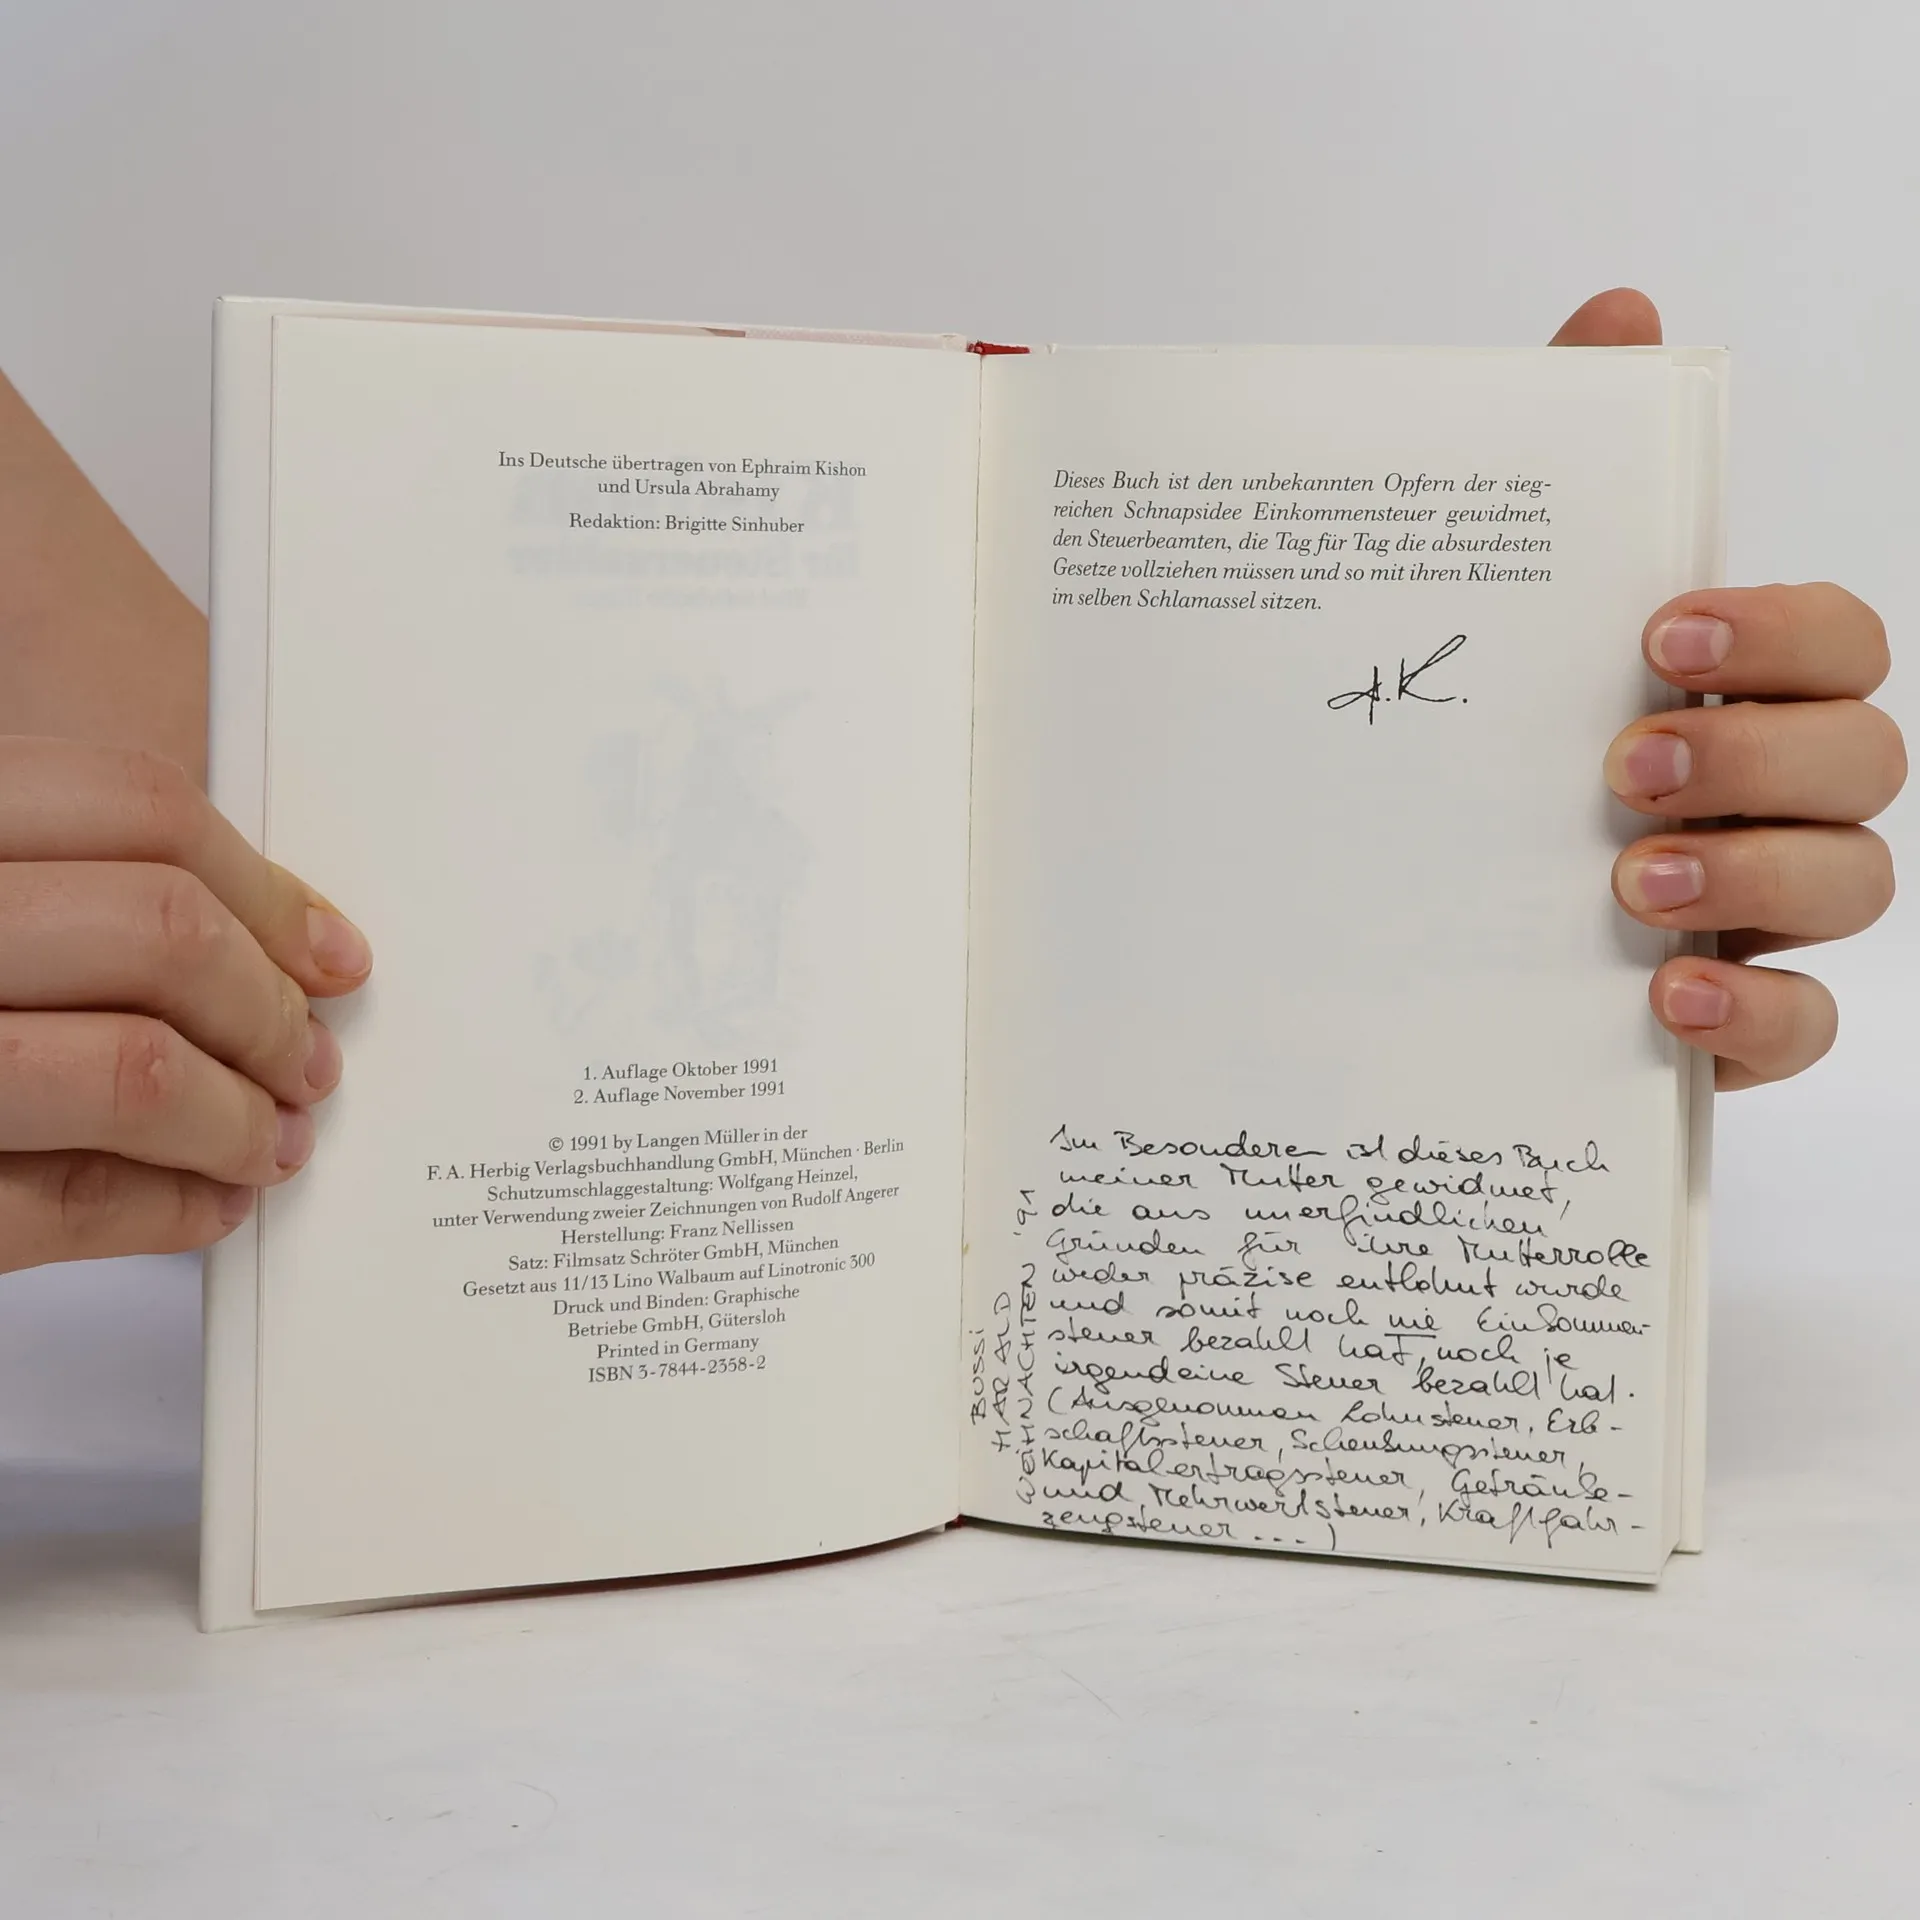 Ins Deutsche übertragen von Ephraim Kishon
und Ursula Abrahamy
Redaktion: Brigitte Sinhuber
1. Auflage Oktober 1991
2. Auflage November 1991
© 1991 by Langen Müller in der
F. A. Herbig Verlagsbuchhandlung GmbH, München · Berlin
Schutzumschlaggestaltung: Wolfgang Heinzel,
unter Verwendung zweier Zeichnungen von Rudolf Angerer
Herstellung: Franz Nellissen
Satz: Filmsatz Schröter GmbH, München
Gesetzt aus 11/13 Lino Walbaum auf Linotronic 300
Druck und Binden: Graphische
Betriebe GmbH, Gütersloh
Printed in Germany
ISBN 3-7844-2358-2
Dieses Buch ist den unbekannten Opfern der sieg-
reichen Schnapsidee Einkommensteuer gewidmet,
den Steuerbeamten, die Tag für Tag die absurdesten
Gesetze vollziehen müssen und so mit ihren Klienten
im selben Schlamassel sitzen.
Im Besonderen ist dieses Buch
meiner Mutter gewidmet,
die aus unerfindlichen
Gründen für ihre Mutterrolle
weder präzise entlohnt wurde
und somit noch nie Einkommen-
steuer bezahlt hat, noch je
irgendeine Steuer bezahlt hat.
(Ausgenommen Lohnsteuer, Erb-
schaftssteuer, Schenkungssteuer,
Kapitalertragssteuer, Getränke-
und Mehrwertsteuer, Kraftfahr-
zeugsteuer ... )
BUSSI
HARALD
WEIHNACHTEN '91